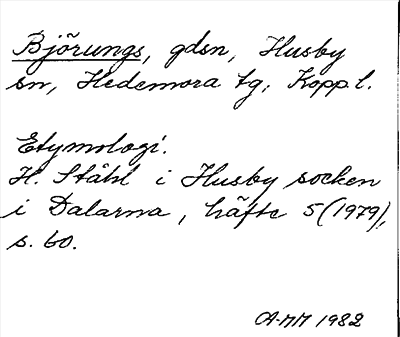 Björungs, gdsn, Husby
sn, Hedemora tg, Kopp.l.
Etymologi.
H. Ståhl i Husby socken
i Dalarna, häfte 5 (1979),
s. 60.
A-MM 1982